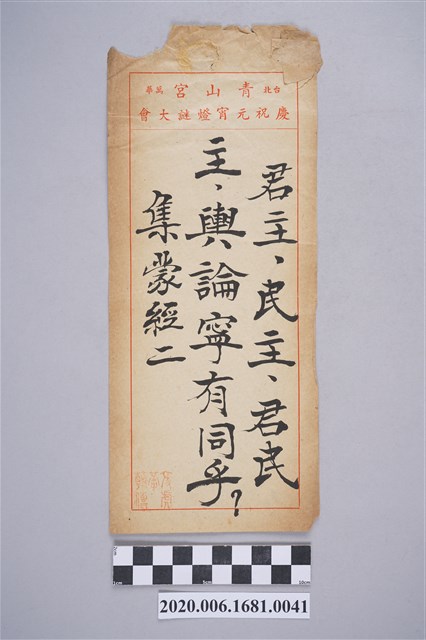 台北 青山宮 萬華
慶祝元宵燈謎大會
君主、民主、君民
主,輿論寧有同乎?
集蒙經二
1cm 5cm 10cm
2020.006.1681.0041